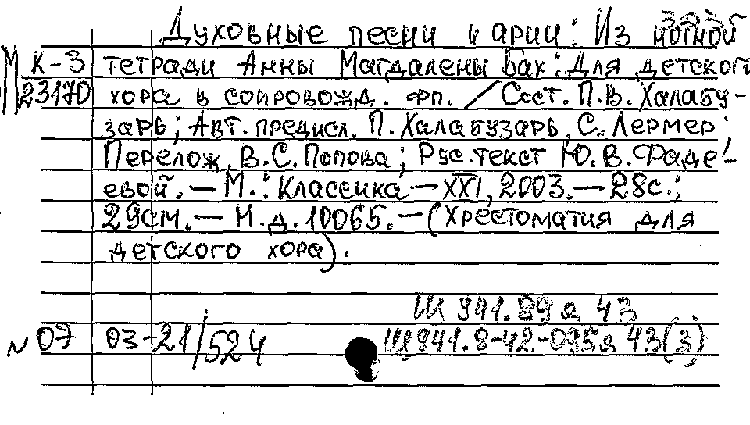 Духовные песни и арии: Из нотной
М К-3 тетради Анны Магдалены Бах: Для детского
23170 хора в сопровожд. фп. / Сост. П.В. Халабу-
зарь; Авт. предисл. П. Халабузарь, С. Лермер;
Перелож. В.С. Попова; Рус. текст Ю.В. Фаде-
евой. — М.: Классика — XXI, 2003. — 28с.;
29см. — Н.д. 10065. — (Хрестоматия для
детского хора).
Щ 941.89 я 43
N 07 03-21/524 Щ941.8-42-095я 43(3)